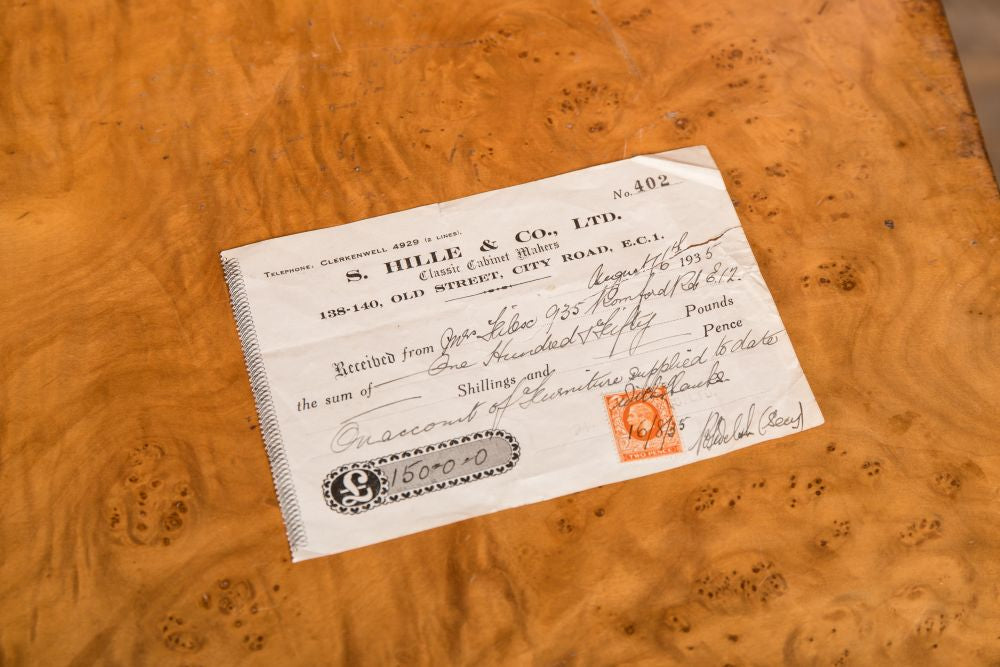 No. 402
TELEPHONE: CLERKENWELL 4929 (2 LINES).
S. HILLE & CO., LTD.
Classic Cabinet Makers
138-140, OLD STREET, CITY ROAD, E.C.1.
August 16th 1935
Received from Mrs 935 Romford Rd E.12.
the sum of One Hundred & Fifty Pounds
Shillings and Pence
On account of Furniture supplied to date
with thanks
£ 150-0-0
16/8/35
(Secy)
TWO PENCE